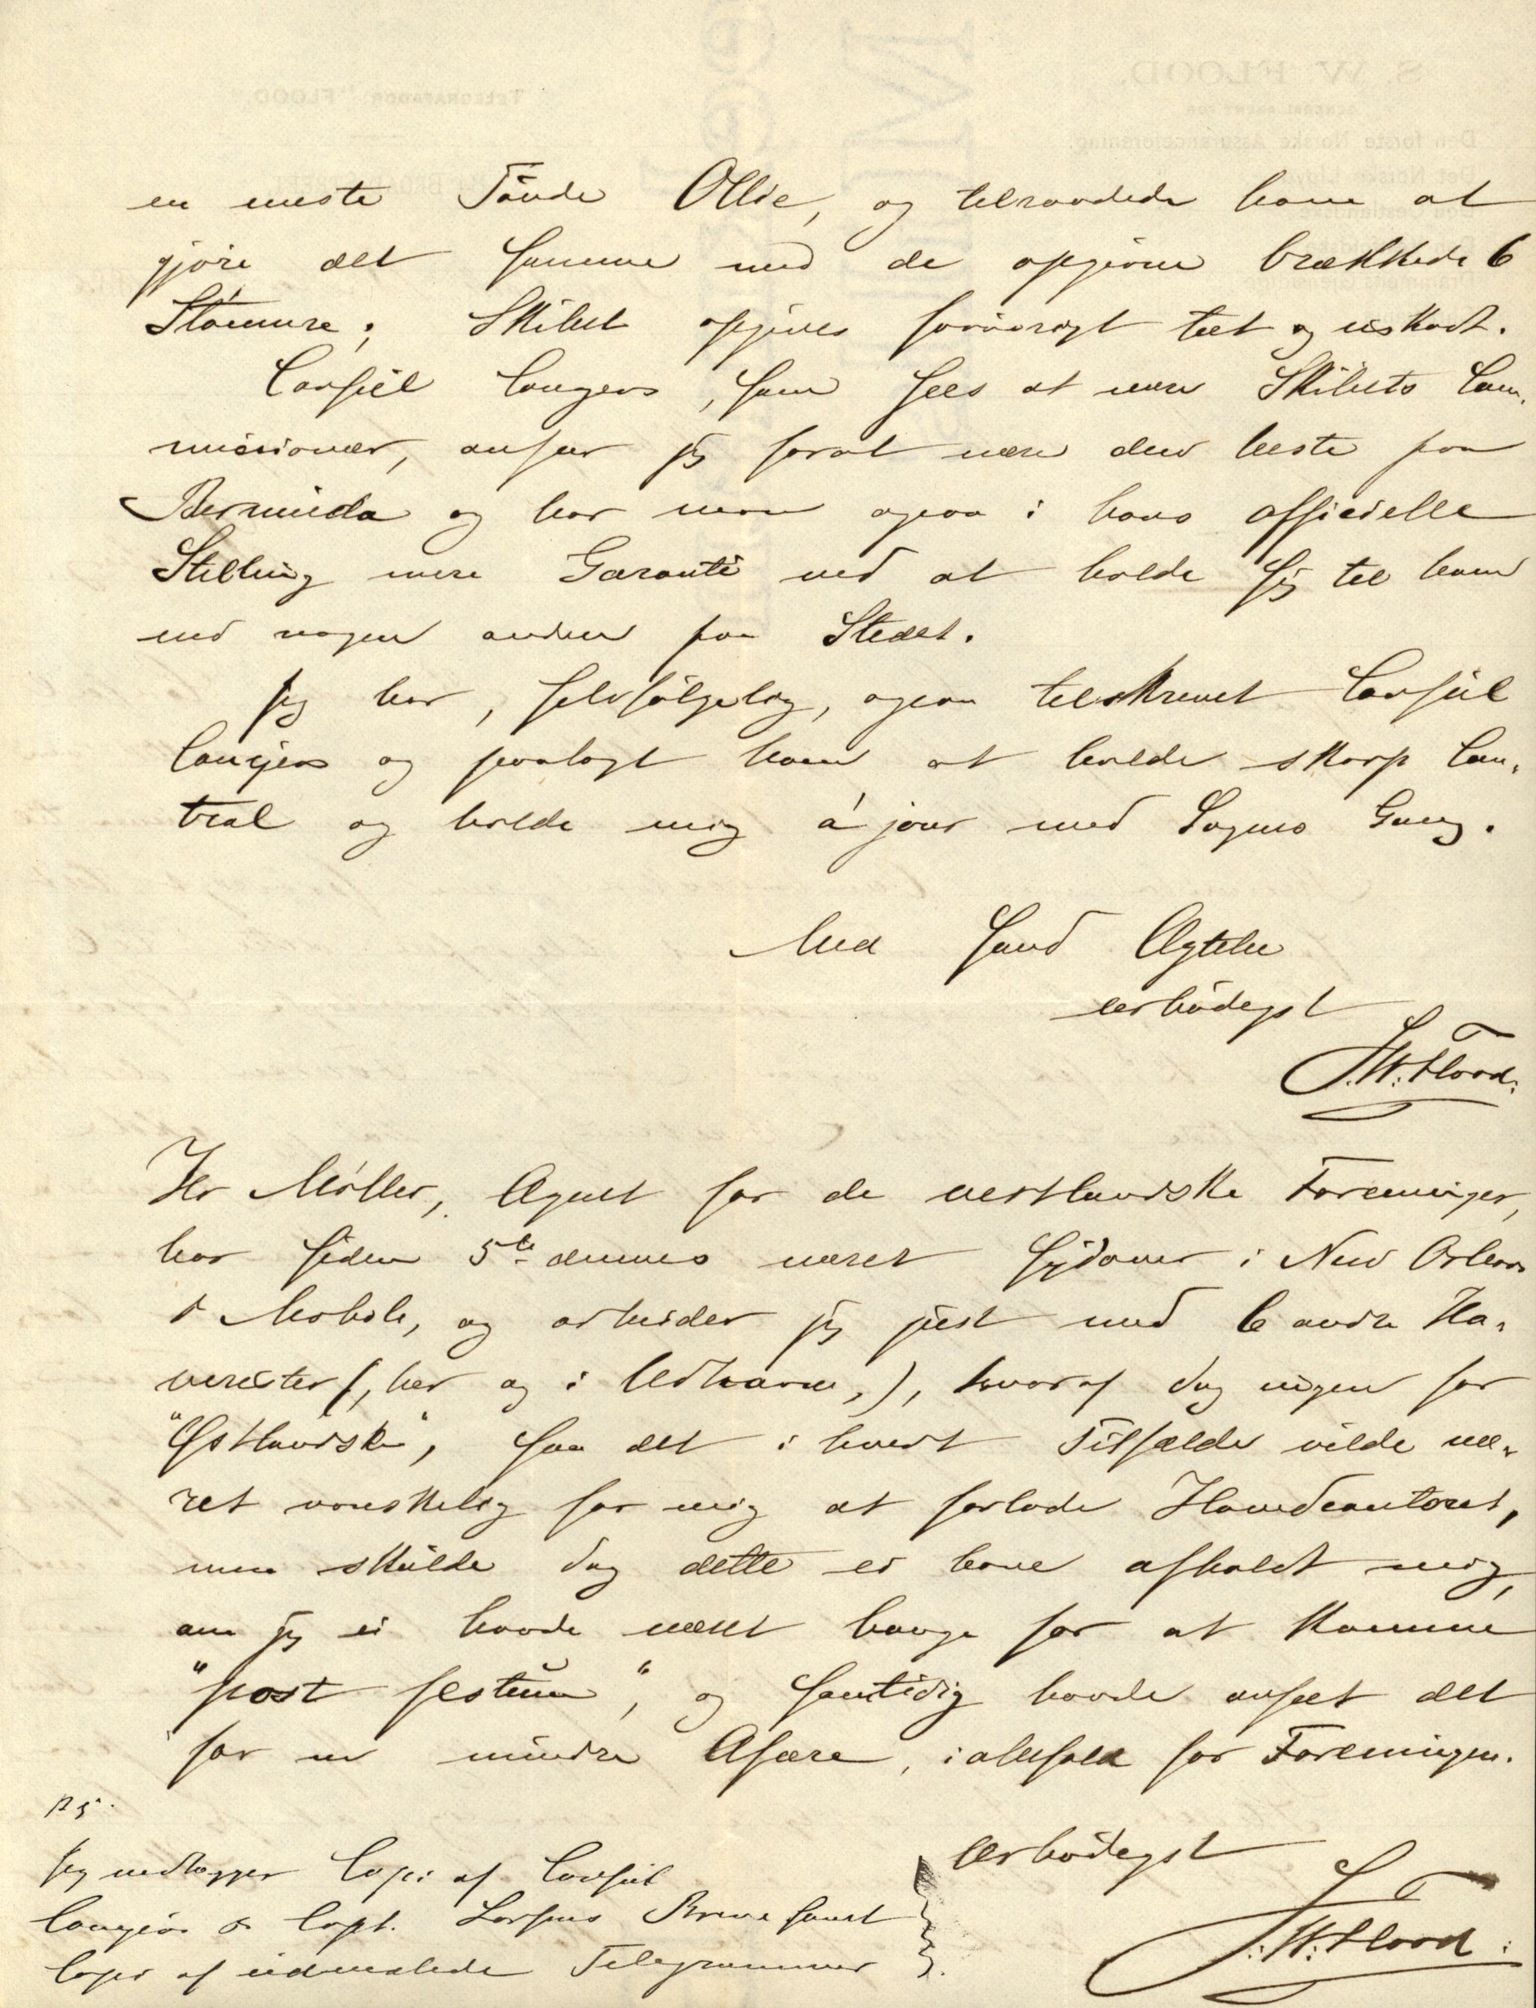 en meste Tönde Ollie, og tilraadede ham at
gjöre det samme med de opgivne brækkede 6
Stömmre; Skibet opgives forövrigt tæt og uskadt.
Consül Conyers, som sees at være Skibets Com-
missionær, anseer jeg forat være den beste paa
Bermuda og har man ogsaa i hans officielle
Stilling mere Garanti ved at holde sig til ham
end nogen anden paa Stedet.
Jeg har, selvfölgelig, ogsaa tilskrevet Consül
Conyers og paalagt ham at holde skarp Con-
trol og holde mig á jour med Sagens Gang.
Med sand Agtelse
ærbödigst
S. W. Flood.
Hr Möller, Agent for de vestlandske Foreninger,
har siden 5te dennes været Sydover i New Orleans
& Mobile, og arbeider jeg just med 6 andre Ha-
verister (, her og i Udhavne,), hvoraf dog ingen for
"Østlandske", saa det i hvert Tilfælde vilde væ-
ret vanskelig for mig at forlade Hovedcontoret,
men skulde dog dette ei have afholdt mig,
om jeg ei havde været bange for at komme
"post festum", og samtidig havde anseet det
for en mindre Afære, i altfald for Foreningen.
ærbödigst
S. W. Flood.
P S.
Jeg vedlægger Copi af Consül
Conyers & Capt. Larsens Breve samt
Copi af udvexlede Telegrammer